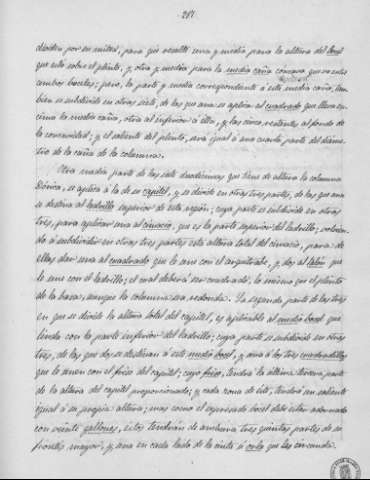 217
dividen por su mitad, para que resulte una y media para la altura del bocel
que está sobre el plinto, y otra y media para la media caña cóncava que va entre
ambos boceles; pero, la parte y media correspondiente á esta media caña, tam-
bien se subdivide en otras siete, de las que una se aplica al cuadrado que lleva en-
cima la media caña, otra al inferior á ella, y las cinco restantes al fondo de
la concavidad; y el saliente del plinto, será igual á una cuarta parte del diáme-
tro de la caña de la columna.
Otra media parte de las siete duodécimas que tiene de altura la columna
Dórica, se aplica á la de su capitel, y se divide en otras tres partes, de las que una
se destina al ladrillo superior de esta región; cuya parte se subdivide en otras
tres, para aplicar una al cimacio, que es la parte superior del ladrillo; volvien-
do á subdividir en otras tres partes esta altura total del cimacio, para de
ellas dar una al cuadrado que le une con el arquitrabe, y dos al talón que
le une con el ladrillo; el cual deberá ser cuadrado, lo mismo que el plinto
de la basa, aunque la columna sea redonda. La segunda parte de las tres
en que se divide la altura total del capitel, es aplicable al medio bocel que
linda con la parte inferior del ladrillo; cuya parte se subdivide en otras
tres, de las que dos se destinan á este medio bocel, y una á los tres cuadradillos
que le unen con el friso del capitel; cuyo friso, tendrá la última tercera parte
de la altura del capitel proporcionado; y cada zona de éste, tendrá un saliente
igual á su propia altura; mas como el expresado bocel debe estar adornado
con veinte gallones, éstos tendrán de anchura tres quintas partes de su
frontis mayor, y una en cada lado de la cinta ú orla que les circunda.